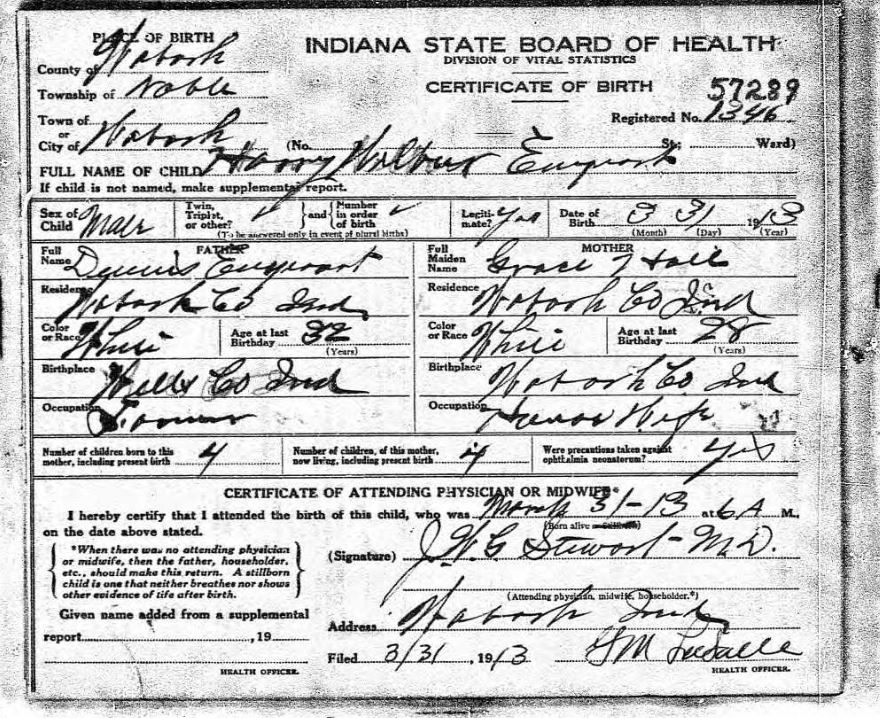 PLACE OF BIRTH
INDIANA STATE BOARD OF HEALTH
DIVISION OF VITAL STATISTICS
County of Wabash
Township of Noble
CERTIFICATE OF BIRTH
57289
Registered No. 1346
Town of
or
City of Wabash
(No. St; Ward)
FULL NAME OF CHILD Harry Wilbur
If child is not named, make supplemental report.
Sex of Child Male
Twin, Triplet, or other? ✓ and Number in order of birth ✓
(To be answered only in event of plural births)
Legitimate? Yes
Date of Birth 3 31 1913
(Month) (Day) (Year)
FATHER
Full Name Dennis
Residence Wabash Co Ind
Color or Race White
Age at last Birthday 32
(Years)
Birthplace Wells Co Ind
Occupation Farmer
MOTHER
Full Maiden Name Grace Hall
Residence Wabash Co Ind
Color or Race White
Age at last Birthday 28
(Years)
Birthplace Wabash Co Ind
Occupation House Wife
Number of children born to this mother, including present birth 4
Number of children, of this mother, now living, including present birth 4
Were precautions taken against ophthalmia neonatorum? Yes
CERTIFICATE OF ATTENDING PHYSICIAN OR MIDWIFE*
I hereby certify that I attended the birth of this child, who was March 31-13 at 6 A M.,
(Born alive or Stillborn)
on the date above stated.
*When there was no attending physician
or midwife, then the father, householder,
etc., should make this return. A stillborn
child is one that neither breathes nor shows
other evidence of life after birth.
(Signature) J.W.G. Stewart - M.D.
(Attending physician, midwife, householder.*)
Given name added from a supplemental
report , 19
HEALTH OFFICER.
Address Wabash Ind
Filed 3/31, 1913
HEALTH OFFICER.